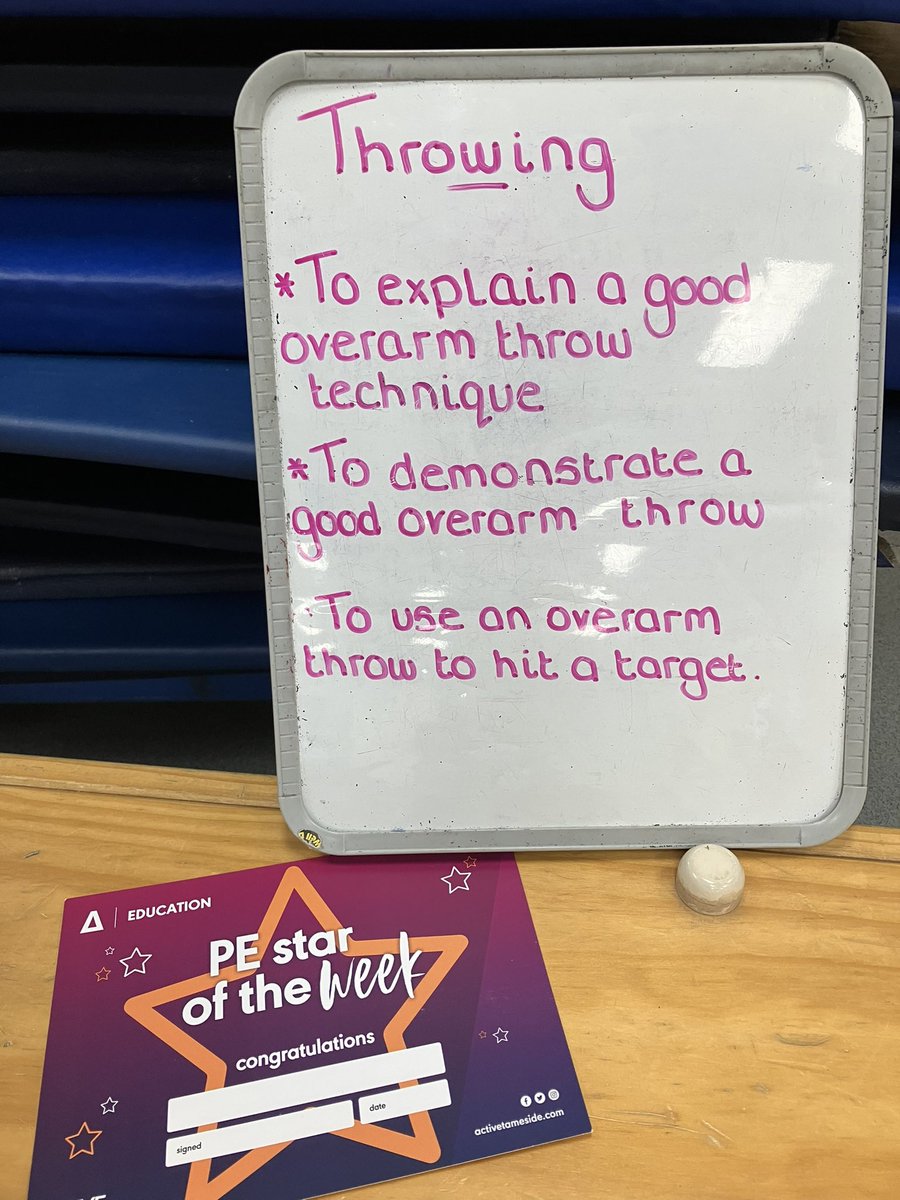 Throwing
*To explain a good
overarm throw
technique
*To demonstrate a
good overarm throw
To use an overarm
throw to hit a target.
EDUCATION
PE star
of the week
congratulations
date
signed
activetameside.com